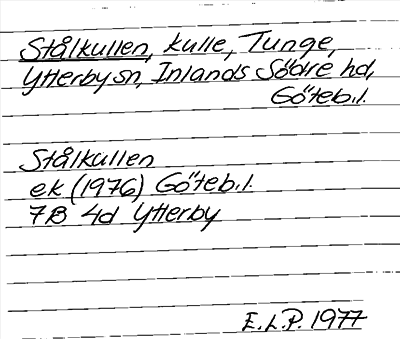 Stålkullen, kulle, Tunge,
Ytterby sn, Inlands Södre hd,
Göteb.l.
Stålkullen
ek (1976) Göteb.l.
7B 4d Ytterby
E.L.P. 1977